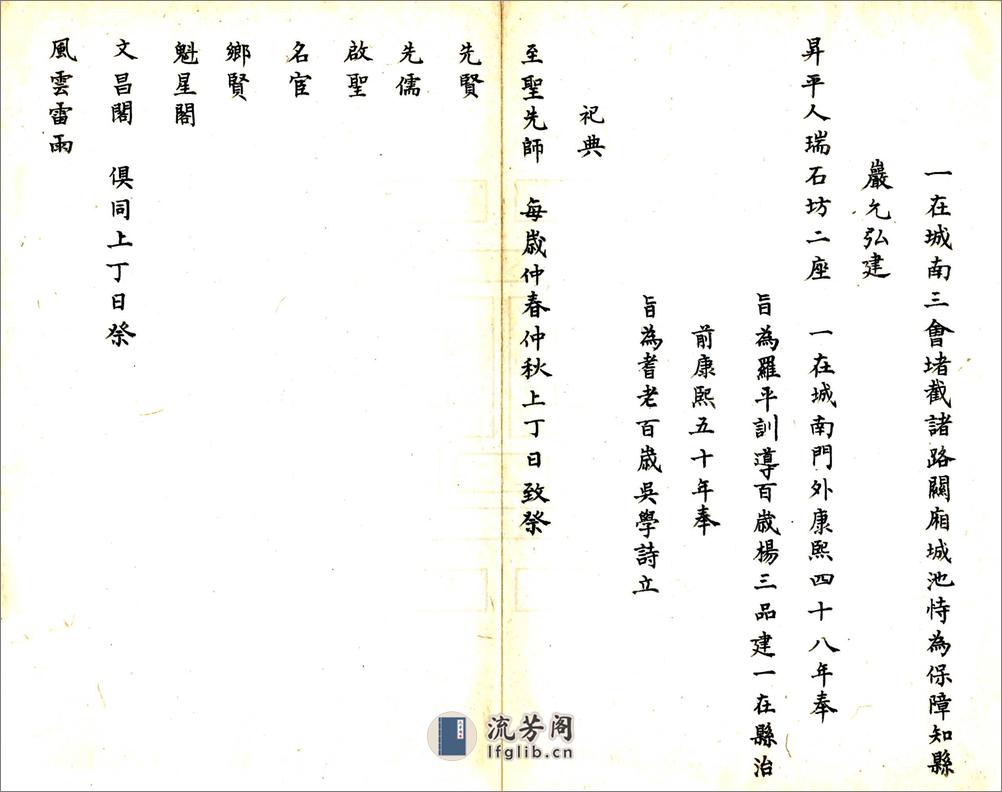 一在城南三會堵截諸路關廂城池恃為保障知縣
嚴允弘建
昇平人瑞石坊二座 一在城南門外康熙四十八年奉
旨為羅平訓導百歲楊三品建一在縣治
前康熙五十年奉
旨為耆老百歲吳學詩立
祀典
至聖先師 每歲仲春仲秋上丁日致祭
先賢
先儒
啟聖
名宦
鄉賢
魁星閣
文昌閣 俱同上丁日祭
風雲雷雨
流芳阁
lfglib.cn